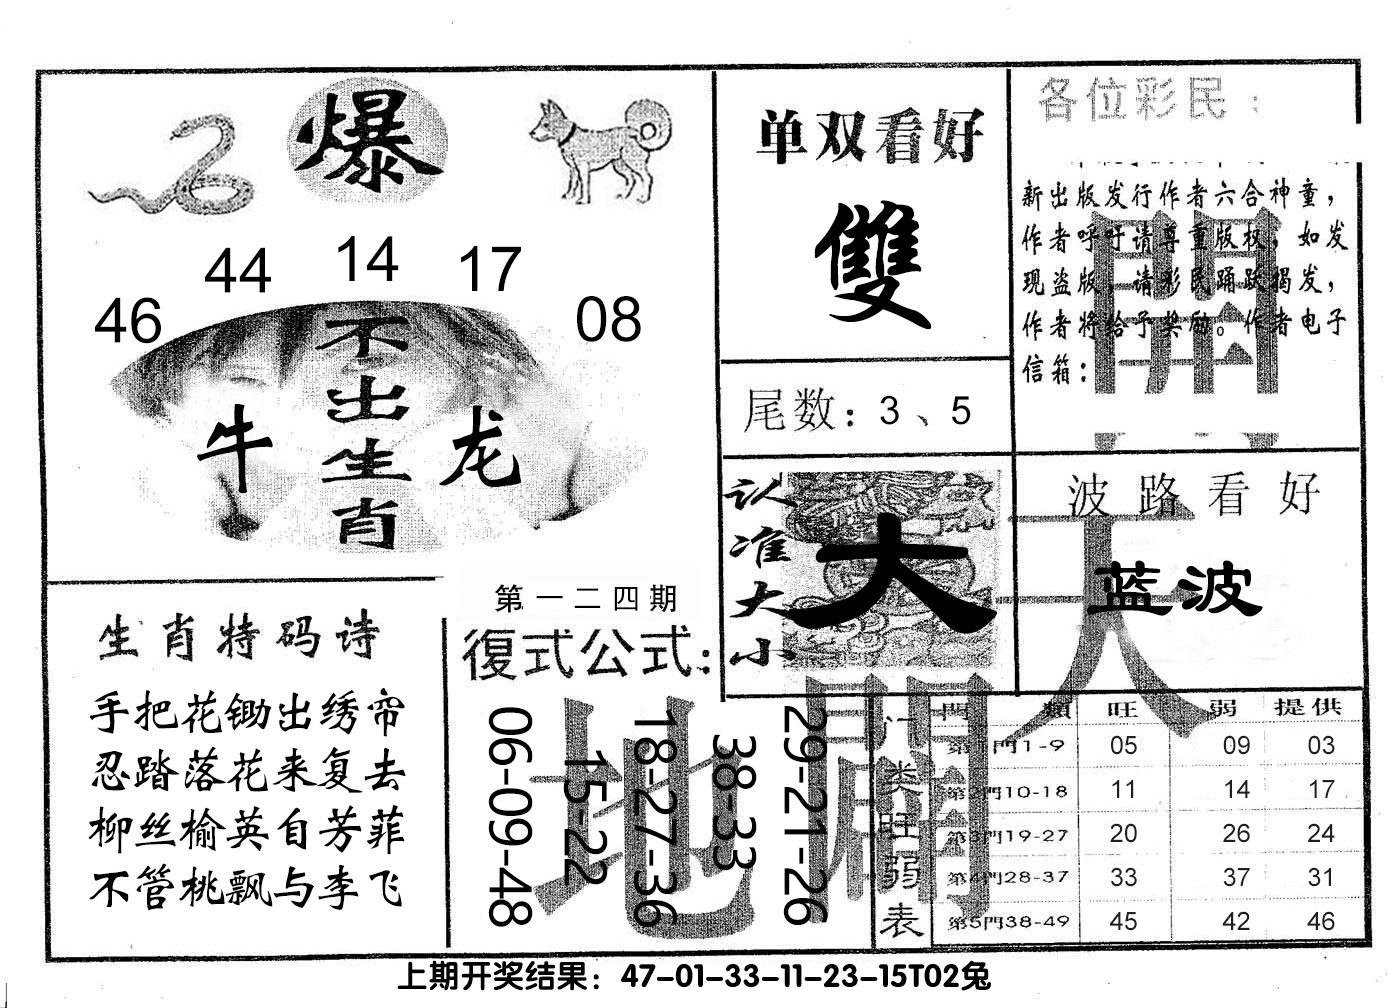 爆
46 44 14 17 08
不出生肖
牛 龙
单双看好
雙
尾数：3、5
各位彩民：
新出版发行作者六合神童，
作者呼吁请尊重版权，如发
现盗版，请彩民踊跃揭发，
作者将给予奖励。作者电子
信箱：
開
认准大小
大
波路看好
蓝波
天
生肖特码诗
手把花锄出绣帘
忍踏落花来复去
柳丝榆英自芳菲
不管桃飘与李飞
第一二四期
復式公式：
地
06-09-48
15-22
18-27-36
38-33
29-21-26
门类旺弱表
門類 旺 弱 提供
第1門1-9 05 09 03
第2門10-18 11 14 17
第3門19-27 20 26 24
第4門28-37 33 37 31
第5門38-49 45 42 46
上期开奖结果：47-01-33-11-23-15T02兔